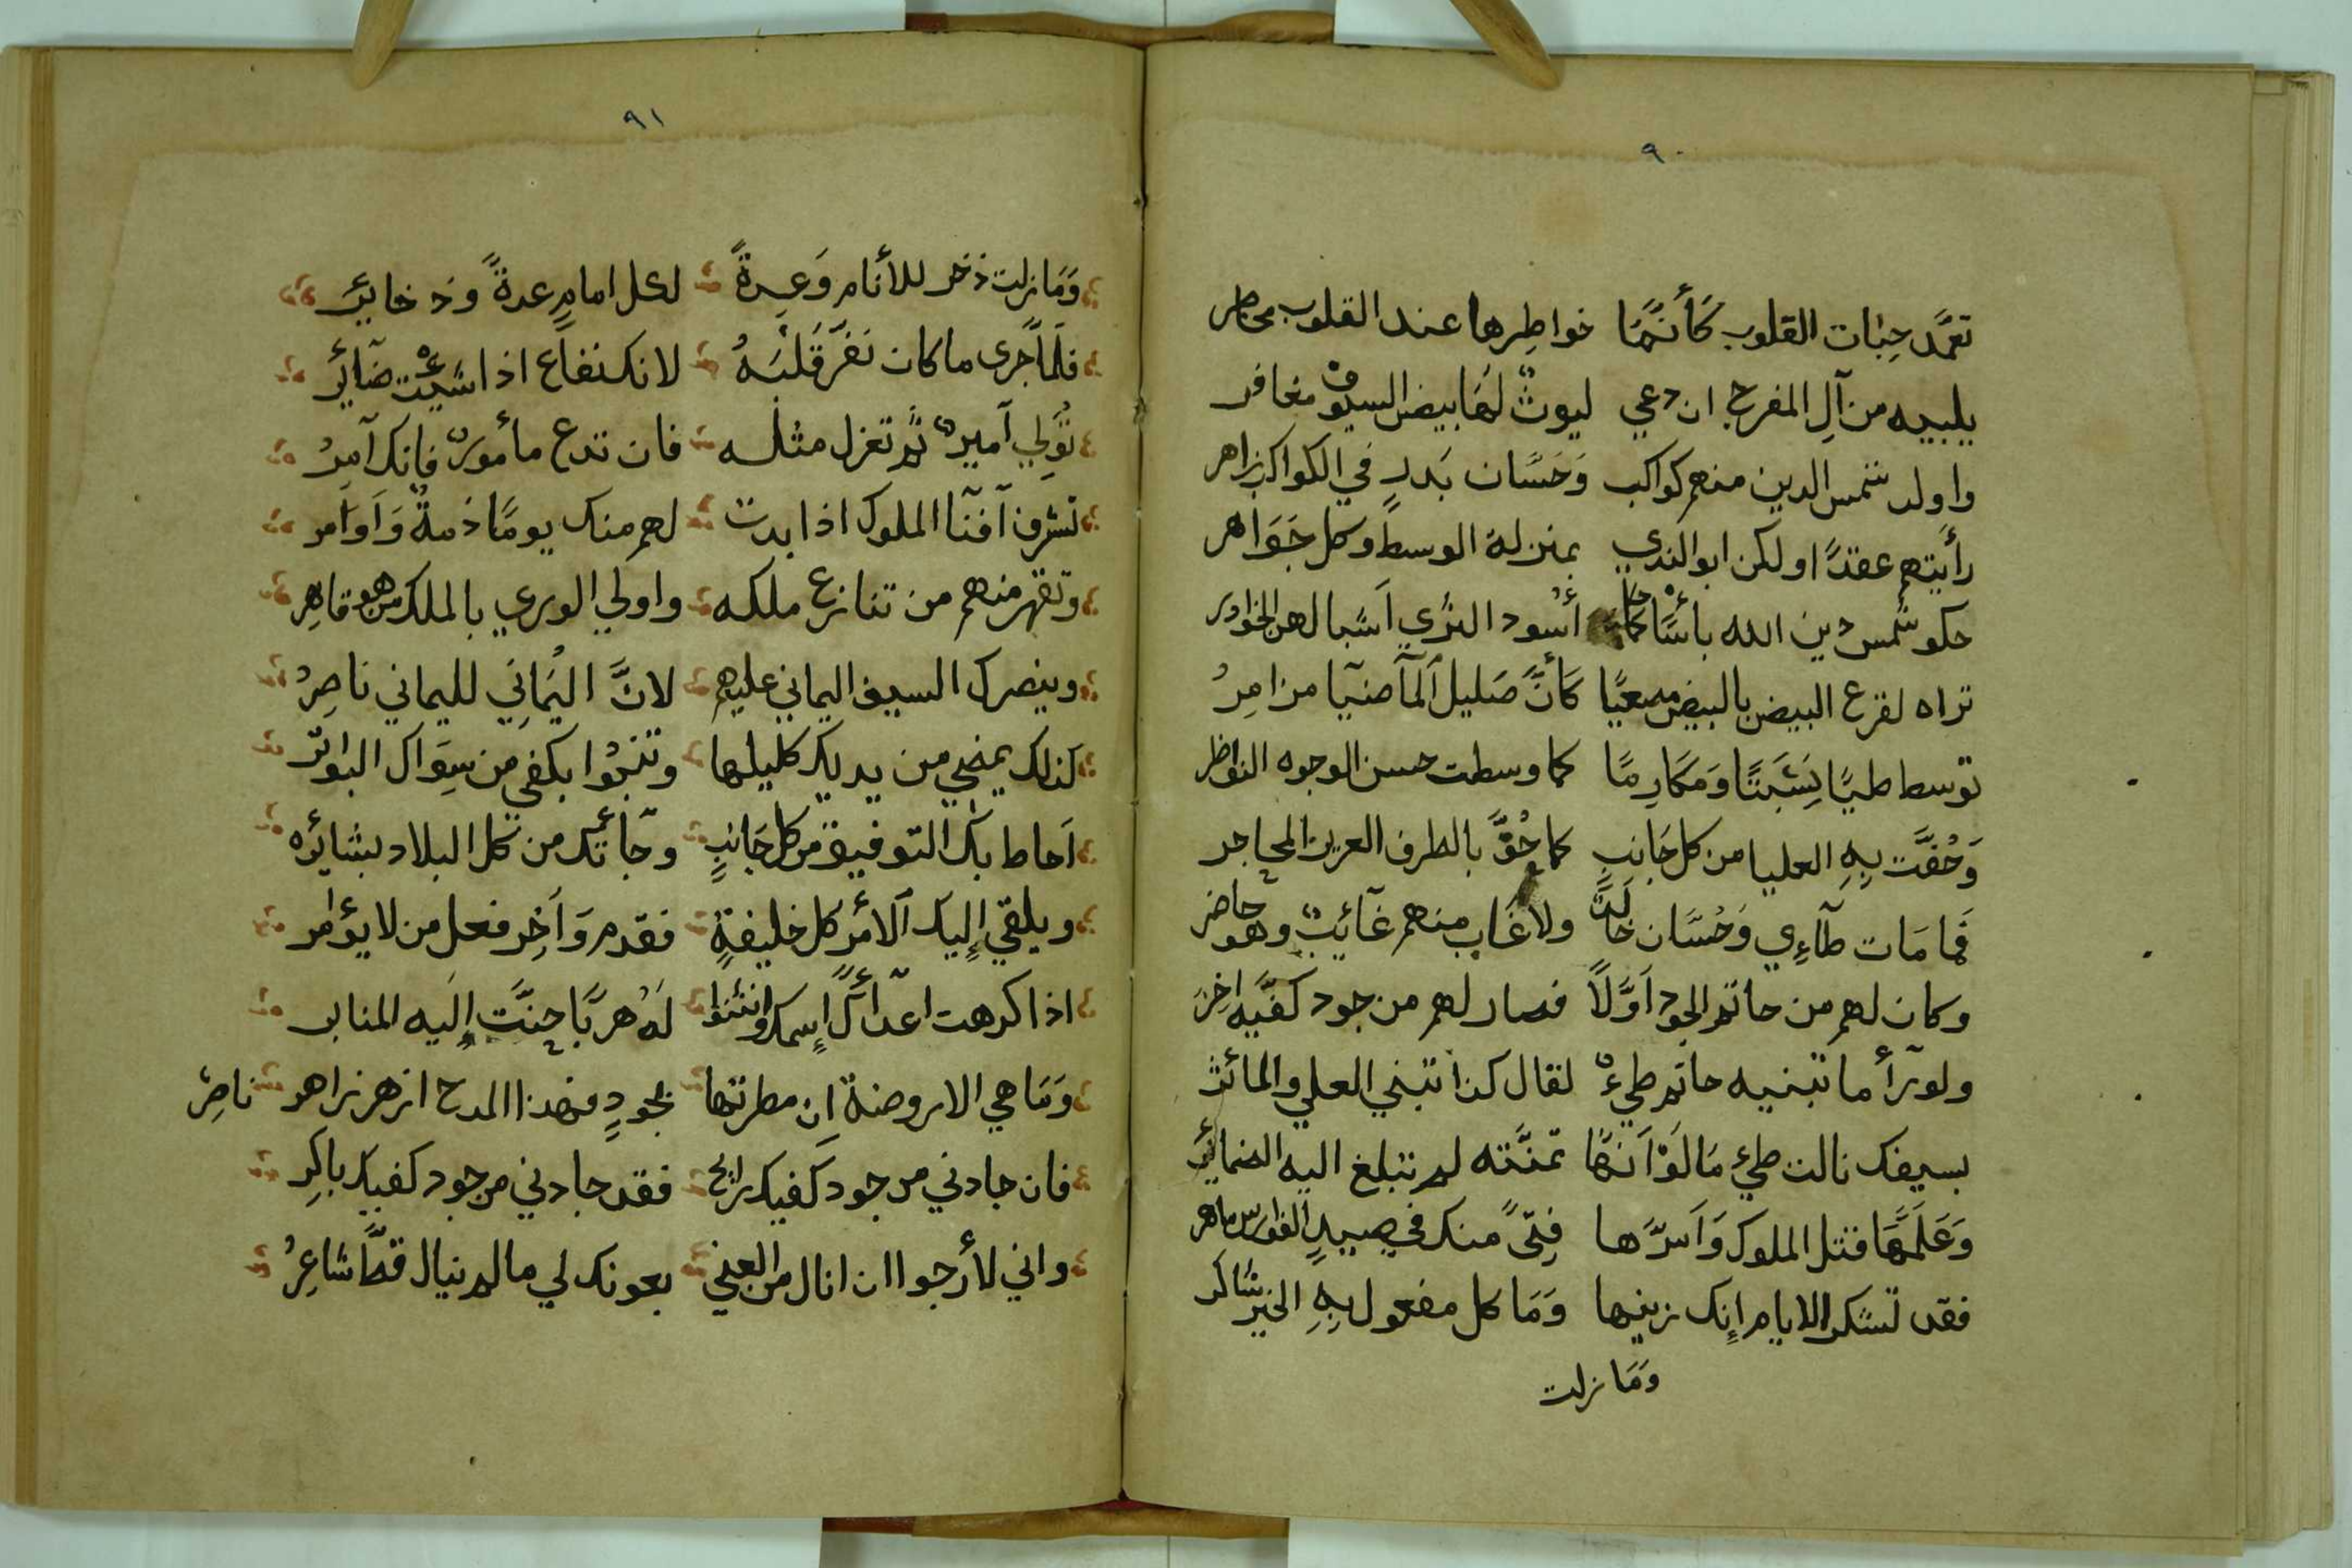 ٩٠
تعمّد حبات القلوب كَأنَّمَا خواطِرها عند القلوب مخاطر
يلبيه من آلِ المفرج ان دعي ليوثٌ لهَا بيض السيوف مغافر
واولد شمس الدين منهم كواكب وَحَسَّان بَدرٍ في الكواكب زاهر
رأيتهم عقدًا ولكن ابو الندي بمنزلة الوسط وكل جَوَاهر
حكو شمس دين الله بأسًا أسُود الشري اَشبالهن الخوادر
تراه لقرع البيض بالبيض مصغيًا كأنَّ صَليل ٱلمآضيآ مزامِرُ
توسط طيًا نِسْبَتًا وَمَكَارِمًا كما وسطت حسن الوجوه النواظر
وَحُفَّت بِهِ العليا من كل جَانِبٍ كما حُفَّ بالطرف العزيز المحاجر
فمَا مَات طآءِي وَحُسَّان خالدٌ ولا غَاب منهم غآئِبٌ وهو حاضر
وكان لهم من حاتم الجود اَوَّلًا فصار لهم من جود كفَّيه اخِرُ
ولو رآأ ما تبنيه حاتم طيءٌ لقال كذا تبني العلي والمآثر
بسيفك نالت طيء مَا لَوْ اَنهَا تمنَّته لم تبلغ اليه الضمائر
وَعَلَّمَهَا قتل الملوك وَاَسرّها فِتىً منك في صيدِ الفوارس ماهر
فقد تشكر الايام إنك زينها وَمَا كل مفعول بِهِ الخير شاكر
وَمَا زلت
٩١
وَمَا زلت ذخر للأنام وَعِدةً لكل امامٍ عدةً وذخايرُ
فلمَّا جرى ما كان نَفَّر قَلْبَهُ لانك نفاع اذا شيْت ضآئر
تُولِي آميرٌ ثم تعزل مثله فان تدع مأمورٌ فانك آمِرُ
تشرف آفنآ الملوك اذا بدت لهم منك يومًا ذمةٌ وَاَوَامر
وتقهر منهم من تنازع ملكه واولي الوري بالملك من هو قاهِر
وينصرك السيف اليماني عليهم لانَّ اليُمَانِي لليماني ناصِرُ
كذلك يمضي من يديك كليلها وتنبُوا بكفي من سِوَاك البواتر
اَحاط بك التوفيق من كل جَانِبٍ وجَآئتك من كل البلاد بشائره
ويلقي إليك ٱلامر كل خليفةٍ فقدم وَاَخِر فعل من لا يؤامر
اذا كرهت اعدآئك إسمك وانثنوا لَهُ هربًا حِنَّت إلَيه المنابر
وَمَا هي الا روضة ان مطرتها بجودٍ فهذا المدح ازهر زاهو ناضِرُ
فان جادني من جود كفيك رايح فقد جادني من جود كفيك باكِر
واني لأرجوا ان انال من الغني بعونك لي مالم ينال قطَّ شاعِرُ